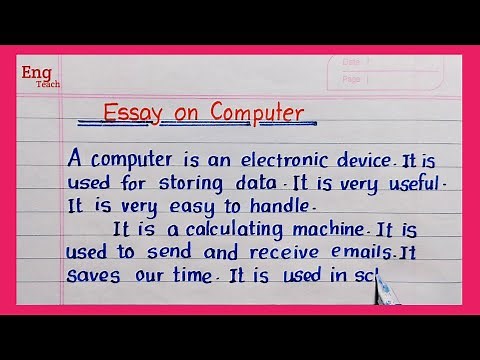 Eng
Teach
Date :
Page :
Essay on Computer
A computer is an electronic device. It is
used for storing data. It is very useful.
It is very easy to handle.
It is a calculating machine. It is
used to send and receive emails. It
saves our time. It is used in scl